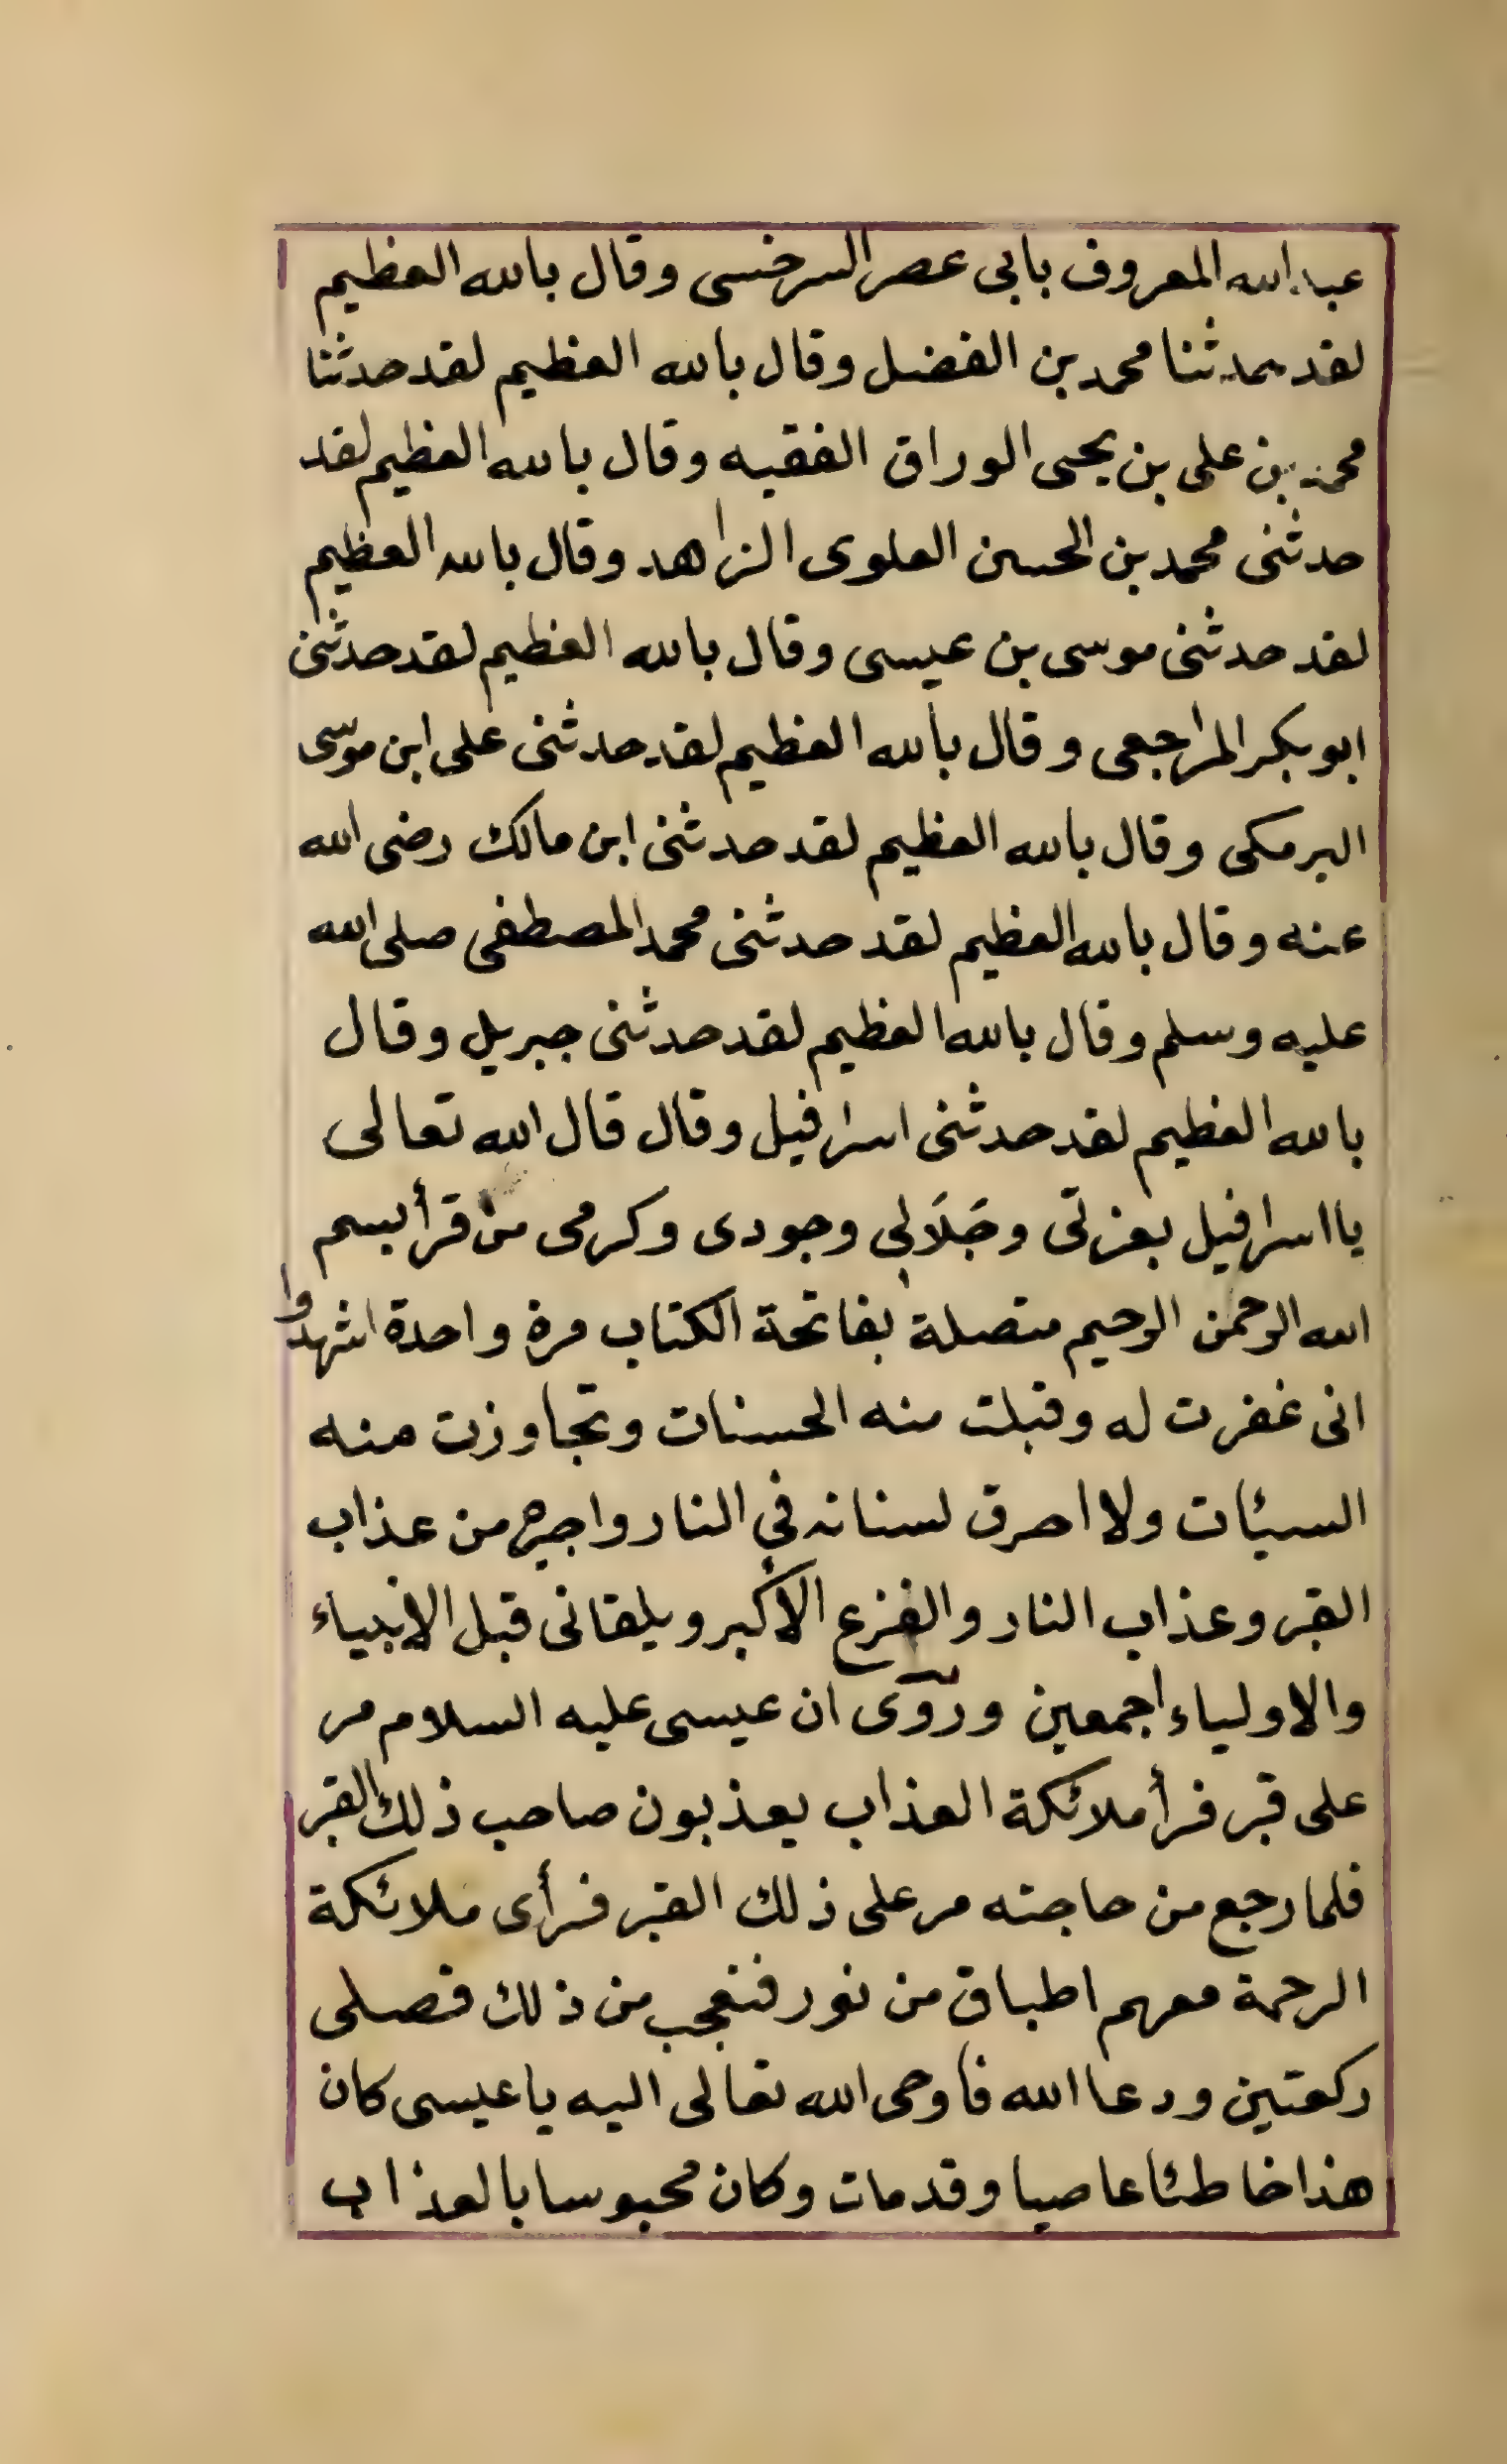 عبد الله المعروف بابى عصر السرخسى وقال بالله العظيم
لقد حدثنا محمد بن الفضل وقال بالله العظيم لقد حدثنا
محمد بن على بن يحيى الوراق الفقيه وقال بالله العظيم لقد
حدثنى محمد بن الحسين العلوى الزاهد وقال بالله العظيم
لقد حدثنى موسى بن عيسى وقال بالله العظيم لقد حدثنى
ابو بكر المراجعى وقال بالله العظيم لقد حدثنى على ابن موسى
البرمكى وقال بالله العظيم لقد حدثنى ابن مالك رضى الله
عنه وقال بالله العظيم لقد حدثنى محمد المصطفى صلى الله
عليه وسلم وقال بالله العظيم لقد حدثنى جبريل وقال
بالله العظيم لقد حدثنى اسرافيل وقال قال الله تعالى
يا اسرافيل بعزتى وجَلَالى وجودى وكرمى من قرأ بسم
الله الرحمن الرحيم متصلة بفاتحة الكتاب مرة واحدة اشهدوا
انى غفرت له وقبلت منه الحسنات وتجاوزت منه
السيئات ولا احرق لسنانه في النار واجيره من عذاب
القبر وعذاب النار والفزع الاكبر ويلقانى قبل الانبياء
والاولياء اجمعين وروى ان عيسى عليه السلام مر
على قبر فرأ ملائكة العذاب يعذبون صاحب ذلك القبر
فلما رجع من حاجته مر على ذلك القبر فرأى ملائكة
الرحمة معهم اطباق من نور فتعجب من ذلك فصلى
ركعتين ودعا الله فأوحى الله تعالى اليه يا عيسى كان
هذا خاطئا عاصيا وقد مات وكان محبوسا بالعذاب